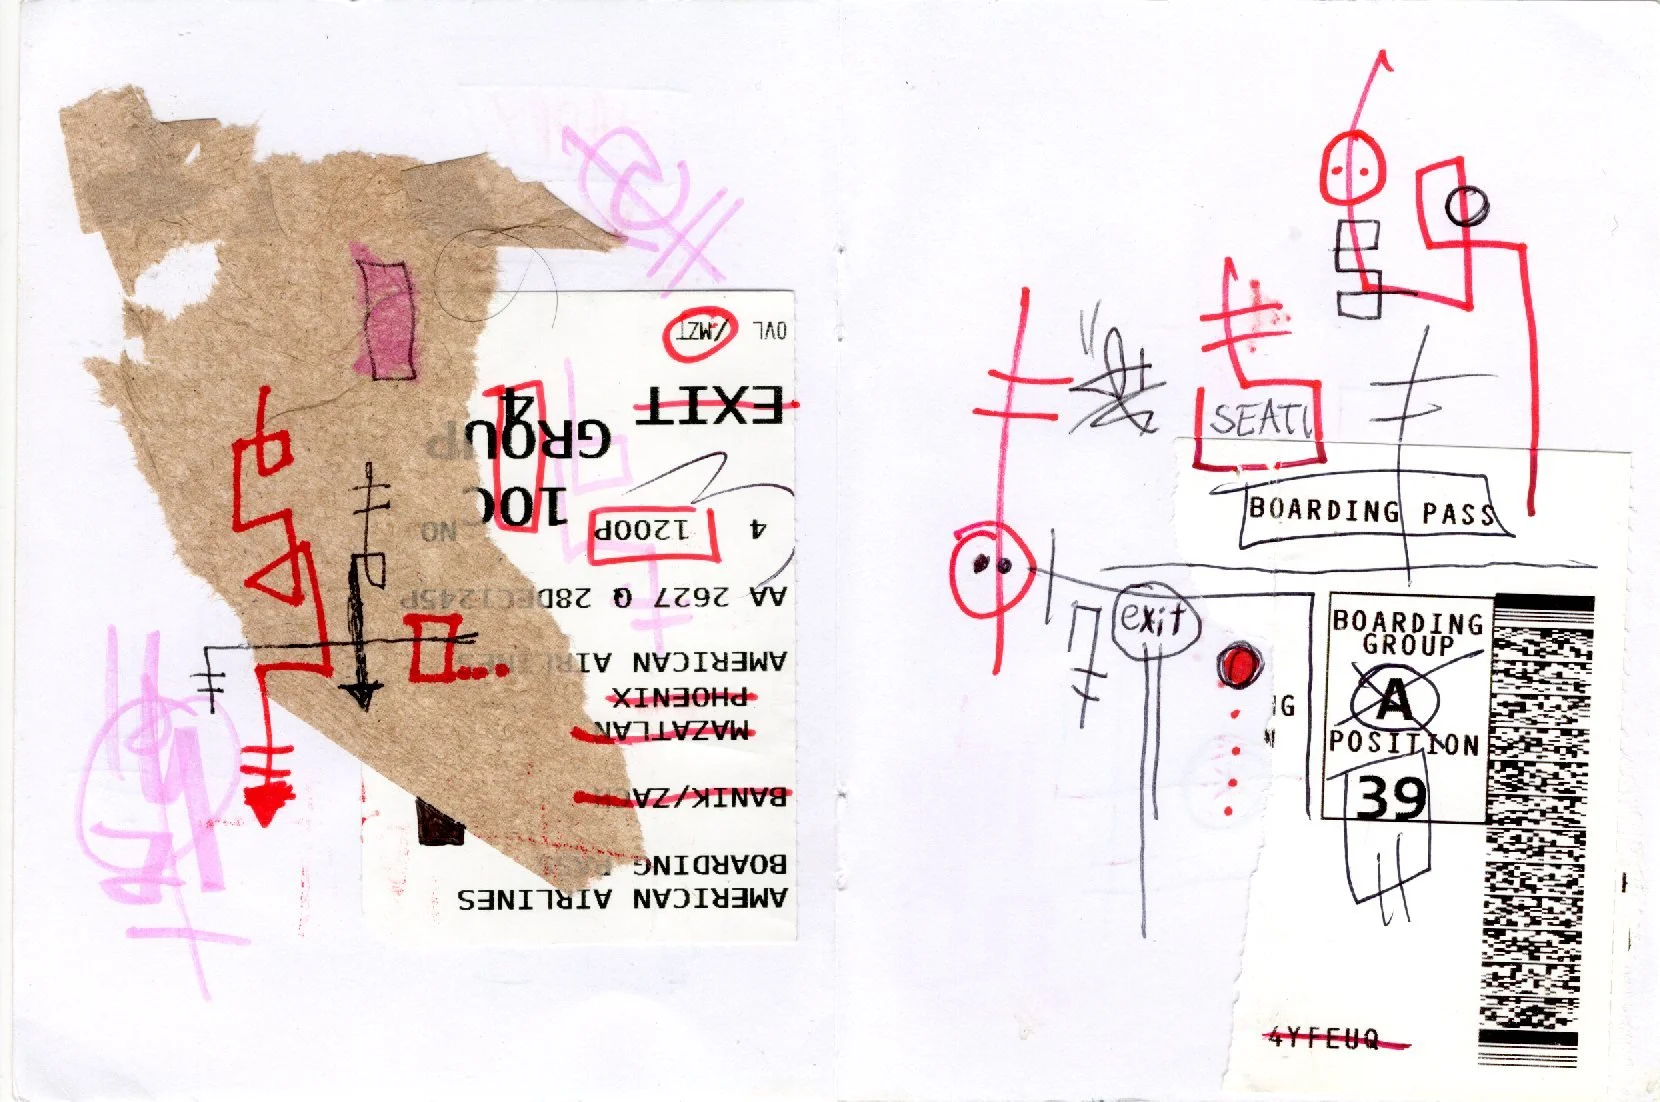 AMERICAN AIRLINES
BOARDING
BANIK/ZAC
MAZATLAN
PHOENIX
AMERICAN AIRLINES
AA 2627 Q 28DEC1245P
4 1200P NO
10C
GROUP
4
EXIT
OVL /MZT
SEATL
BOARDING PASS
exit
BOARDING
GROUP
A
POSITION
39
4YFEUQ